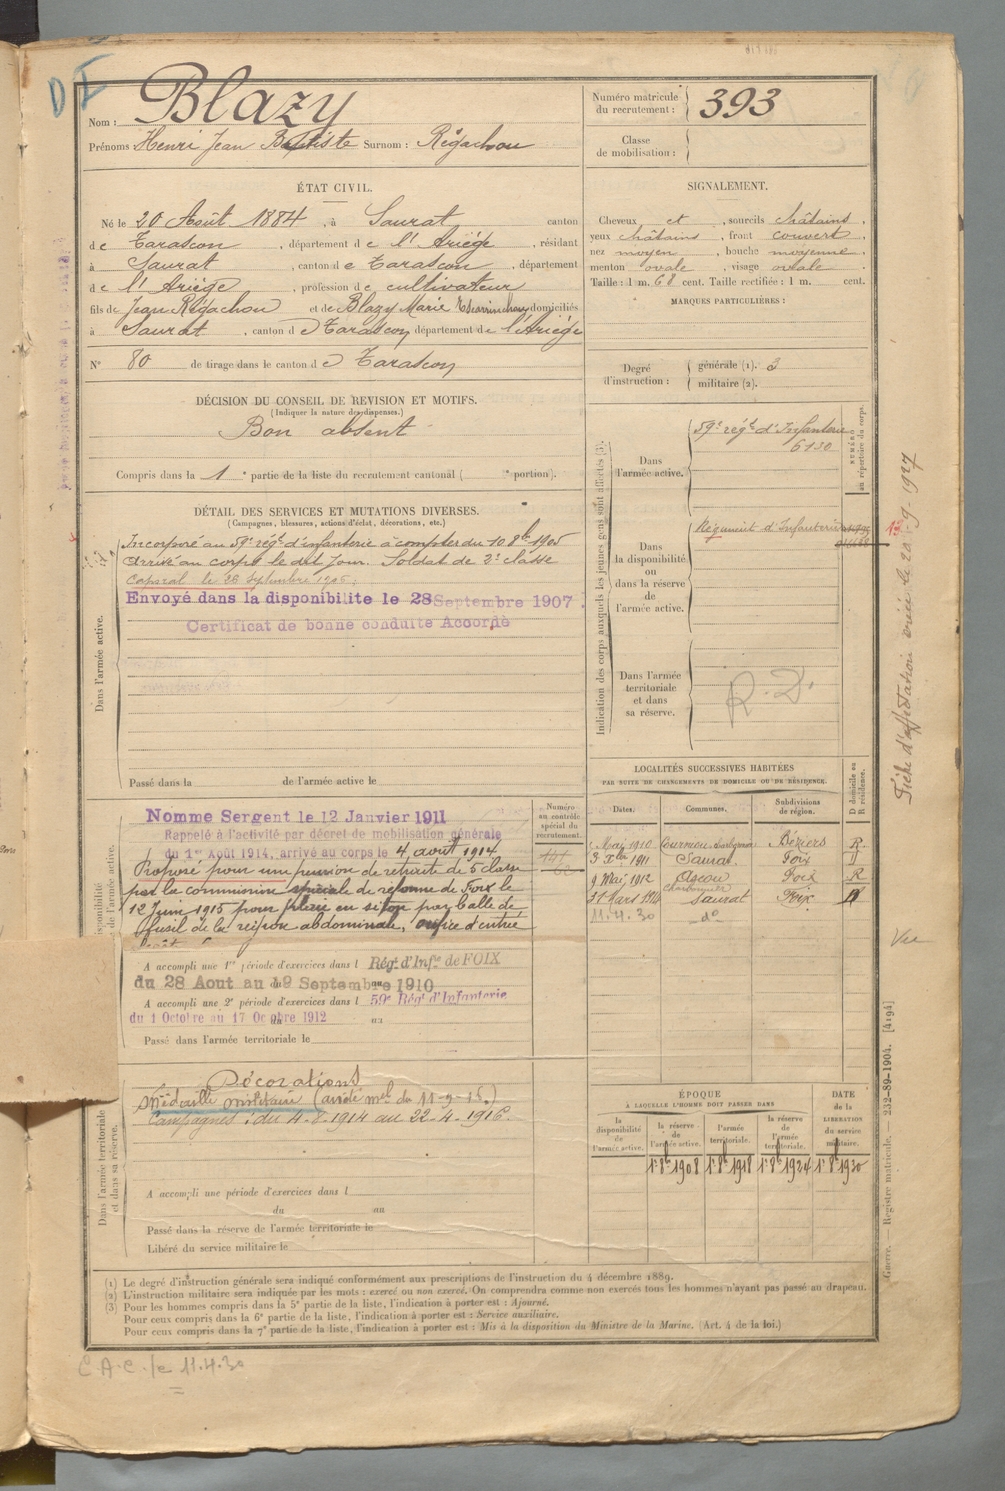 D I
Nom : Blazy
Prénoms Henri Jean Baptiste Surnom : Régachou
Numéro matricule du recrutement : 393
Classe de mobilisation :
ÉTAT CIVIL.
Né le 20 Août 1884, à Saurat canton
de Tarascon, département de l'Ariège, résidant
à Saurat, canton de Tarascon, département
de l'Ariège, profession de cultivateur
fils de Jean Régachou et de Blazy Marie domiciliés
à Saurat, canton de Tarascon département de l'Ariège
N° 80 de tirage dans le canton de Tarascon
SIGNALEMENT.
Cheveux et, sourcils châtains,
yeux châtains, front couvert,
nez moyen, bouche moyenne,
menton ovale, visage ovale
Taille : 1 m. 68 cent. Taille rectifiée : 1 m. cent.
MARQUES PARTICULIÈRES :
Degré d'instruction :
générale (1). 3
militaire (2).
DÉCISION DU CONSEIL DE REVISION ET MOTIFS.
(Indiquer la nature des dispenses.)
Bon absent
Compris dans la 1e partie de la liste du recrutement cantonal ( e portion).
DÉTAIL DES SERVICES ET MUTATIONS DIVERSES.
(Campagnes, blessures, actions d'éclat, décorations, etc.)
Dans l'armée active.
Incorporé au 59e régt d'infanterie à compter du 10 8bre 1905
Arrivé au corps le dit jour. Soldat de 2e classe
Caporal le 26 septembre 1906.
Envoyé dans la disponibilite le 28 Septembre 1907.
Certificat de bonne conduite Accordé
Passé dans la de l'armée active le
Indication des corps auxquels les jeunes gens sont affectés (3).
NUMÉRO au répertoire du corps.
Dans l'armée active.
59e régt d'Infanterie
6130
Dans la disponibilité ou dans la réserve de l'armée active.
Régiment d'Infanterie
Dans l'armée territoriale et dans sa réserve.
R.D.
Fiche d'affectation le 20-9-1927
LOCALITÉS SUCCESSIVES HABITÉES
PAR SUITE DE CHANGEMENTS DE DOMICILE OU DE RÉSIDENCE.
Dates. Communes. Subdivisions de région. D domicile ou R résidence.
Mai 1910 Béziers R
3 Xbre 1911 Saurat Foix
9 Mai 1912 Foix R
31 Mars 1914 Saurat Foix
11.4.30 do
Numéro au contrôle spécial du recrutement.
Nomme Sergent le 12 Janvier 1911
Rappelé à l'activité par décret de mobilisation générale
du 1er Août 1914, arrivé au corps le 4 août 1914
Proposé pour une pension de retraite de 5e classe
par la commission spéciale de réforme de Foix le
12 Juin 1915 pour plaie en séton par balle de
fusil de la région abdominale, orifice d'entrée
A accompli une 1re période d'exercices dans l Régt d'Infie de FOIX
du 28 Aout au 19 Septembre 1910
A accompli une 2e période d'exercices dans l 59e Régt d'Infanterie
du 1 Octobre au 17 Octobre 1912
Passé dans l'armée territoriale le
Vu
Dans l'armée territoriale et dans sa réserve.
Décorations
Médaille militaire (arrêté mel du 11-9-15.)
Campagnes : du 4-8-1914 au 22-4-1916
A accompli une période d'exercices dans l
du au
Passé dans la réserve de l'armée territoriale le
Libéré du service militaire le
ÉPOQUE
À LAQUELLE L'HOMME DOIT PASSER DANS
la disponibilité de l'armée active.
la réserve de l'armée active.
l'armée territoriale.
la réserve de l'armée territoriale.
DATE de la LIBÉRATION du service militaire.
1er 8bre 1908 1er 8bre 1918 1er 8bre 1924 1er 8bre 1930
Guerre. — Registre matricule. — 232-89-1904. [4194]
(1) Le degré d'instruction générale sera indiqué conformément aux prescriptions de l'instruction du 4 décembre 1889.
(2) L'instruction militaire sera indiquée par les mots : exercé ou non exercé. On comprendra comme non exercés tous les hommes n'ayant pas passé au drapeau.
(3) Pour les hommes compris dans la 5e partie de la liste, l'indication à porter est : Ajourné.
Pour ceux compris dans la 6e partie de la liste, l'indication à porter est : Service auxiliaire.
Pour ceux compris dans la 7e partie de la liste, l'indication à porter est : Mis à la disposition du Ministre de la Marine. (Art. 4 de la loi.)
C.A.C. le 11.4.30